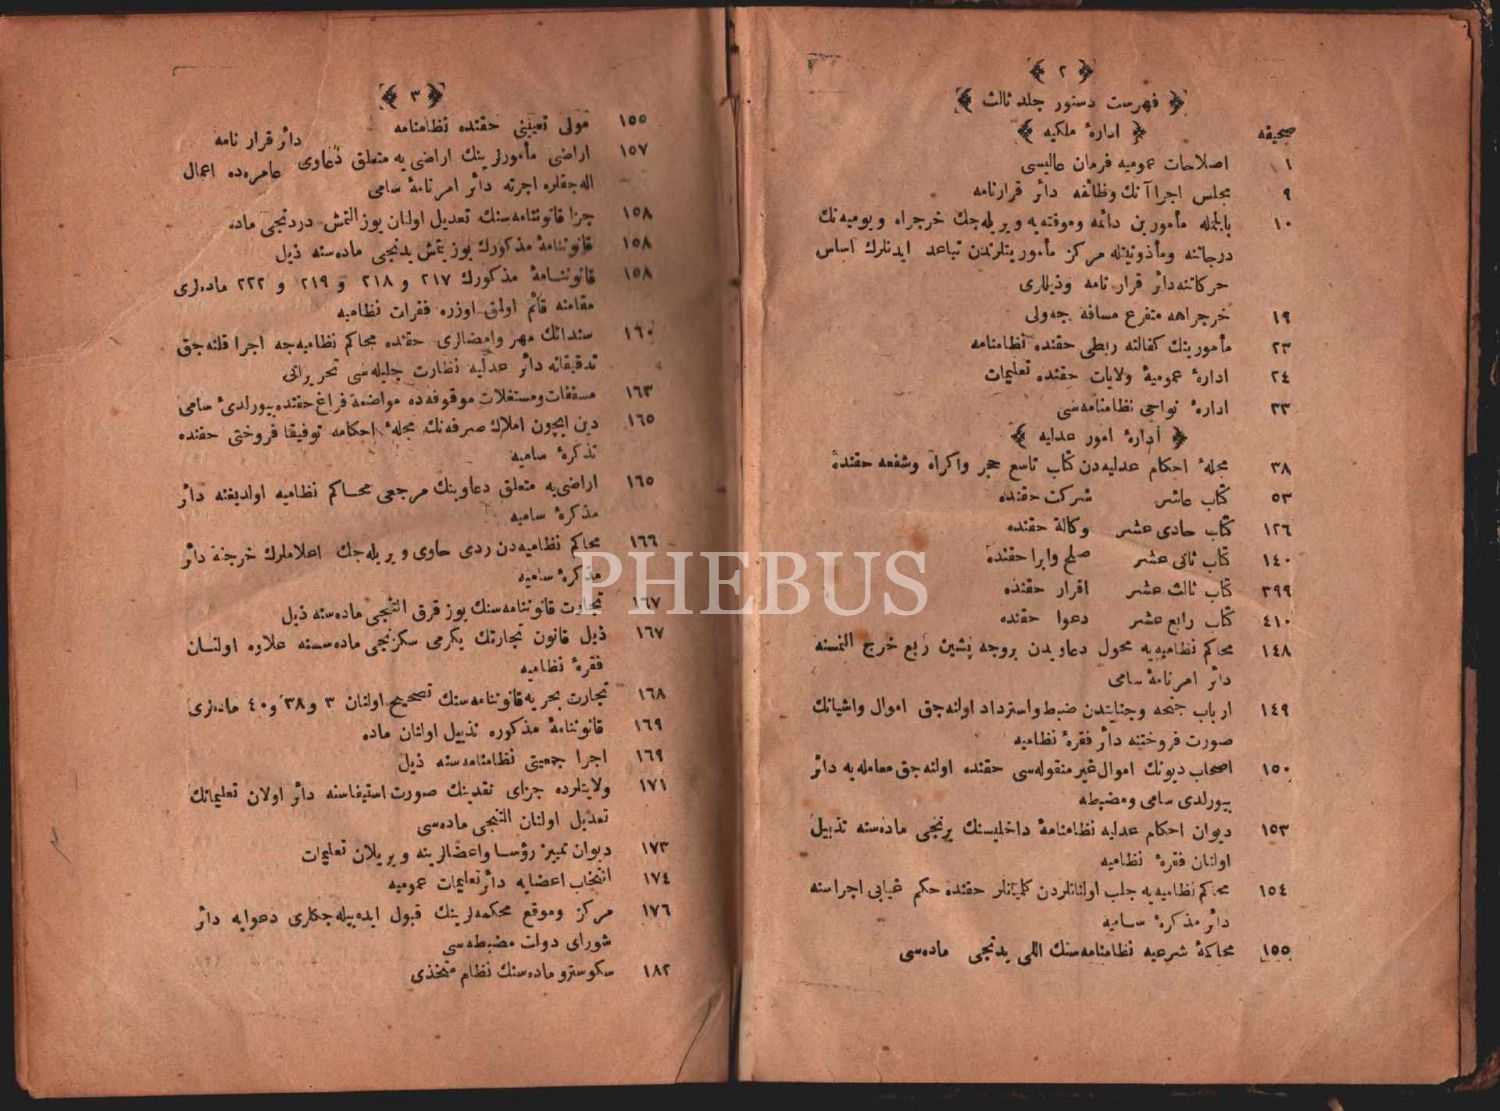 ﴿ ٢ ﴾
﴿ فهرست دستور جلد ثالث ﴾
صحیفه ﴿ ادارهٔ ملكیه ﴾
١ اصلاحات عمومیه فرمان عالیسی
٩ مجلس اجراآتك وظائفه دائر قرارنامه
١٠ بالجمله مأمورین دائمه وموقته‌یه ویریله‌جك خرجراه ویومیه‌نك
درجاتنه ومأذونیتله مركز مأموریتلرندن تباعد ایدنلرك اساس
حركاتنه‌دائر قرار نامه وذیللری
١٩ خرجراهه متفرع مسافه جدولی
٢٣ مأمورینك كفالته ربطی حقنده نظامنامه
٢٤ ادارهٔ عمومیهٔ ولایات حقنده تعلیمات
٣٣ ادارهٔ نواحی نظامنامه‌سی
﴿ ادارهٔ امور عدلیه ﴾
٣٨ مجلهٔ احكام عدلیه‌دن كتاب تاسع حجر واكراه وشفعه حقنده
٥٣ كتاب عاشر شركت حقنده
١٢٦ كتاب حادی عشر وكالة حقنده
١٤٠ كتاب ثانی عشر صلح وابرا حقنده
٣٩٩ كتاب ثالث عشر اقرار حقنده
٤١٠ كتاب رابع عشر دعوا حقنده
١٤٨ محاكم نظامیه‌یه محول دعاویدن بروجه پشین ربع خرج النمسنه
دائر امرنامهٔ سامی
١٤٩ ارباب جنحه وجنایتدن ضبط واسترداد اولنه‌جق اموال واشیانك
صورت فروختنه دائر فقرهٔ نظامیه
١٥٠ اصحاب دیونك اموال غیر منقوله‌سی حقنده اولنه‌جق معامله‌یه دائر
بیورلدی سامی ومضبطه
١٥٣ دیوان احكام عدلیه نظامنامهٔ داخلیسنك برنجی ماده‌سنه تذییل
اولنان فقرهٔ نظامیه
١٥٤ محاكم نظامیه‌یه جلب اولنانلردن كلمیانلر حقنده حكم غیابی اجراسنه
دائر مذكرهٔ سامیه
١٥٥ محاكمهٔ شرعیه نظامنامه‌سنك اللی یدنجی ماده‌سی
﴿ ٣ ﴾
١٥٥ متولی تعیینی حقنده نظامنامه
دائر قرار نامه
١٥٧ اراضی مأمورلرینك اراضی‌یه متعلق دعاوی عامره‌ده اعمال
اله‌جقلره اجرته دائر امرنامهٔ سامی
١٥٨ جزا قانوننامه‌سنك تعدیل اولنان یوز التمش دردنجی ماده
١٥٨ قانوننامهٔ مذكورك یوز یتمش یدنجی ماده‌سنه ذیل
١٥٨ قانوننامهٔ مذكورك ٢١٧ و ٢١٨ و ٢١٩ و ٢٢٢ ماده‌لری
مقامنه قائم اولمق اوزره فقرات نظامیه
١٦٠ سنداتك مهر وامضالری حقنده محاكم نظامیه‌جه اجرا قلنه‌جق
تدقیقاته دائر عدلیه نظارت جلیله‌سی تحریراتی
١٦٣ مسقفات ومستغلات موقوفه‌ده مواضعة فراغ حقنده بیورلدیٔ سامی
١٦٥ دین ایچون املاك صرفه‌نك مجلهٔ احكامه توفیقا فروختی حقنده
تذكرهٔ سامیه
١٦٥ اراضی‌یه متعلق دعاوینك مرجعی محاكم نظامیه اولدیغنه دائر
مذكرهٔ سامیه
١٦٦ محاكم نظامیه‌دن ردی حاوی ویریله‌جك اعلاملرك خرجنه دائر
مذكرهٔ سامیه
١٦٧ تجارت قانوننامه‌سنك یوز قرق التنجی ماده‌سنه ذیل
١٦٧ ذیل قانون تجارتك یكرمی سكزنجی ماده‌سنه علاوه اولنان
فقرهٔ نظامیه
١٦٨ تجارت بحریه قانوننامه‌سنك تصحیح اولنان ٣ و٣٨ و٤٠ ماده‌لری
١٦٩ قانوننامهٔ مذكوره تذییل اولنان ماده
١٦٩ اجرا جمعیتی نظامنامه‌سنه ذیل
١٧١ ولایتلرده جزای نقدینك صورت استیفاسنه دائر اولان تعلیماتك
تعدیل اولنان التنجی ماده‌سی
١٧٣ دیوان تمییز رؤسا واعضالرینه ویریلان تعلیمات
١٧٤ انتخاب اعضایه دائر تعلیمات عمومیه
١٧٦ مركز وموقع محكمه‌لرینك قبول ایده‌بیله‌جكلری دعوایه دائر
شورای دولت مضبطه‌سی
١٨٢ سكوسترو ماده‌سنك نظام متخذی
PHEBUS